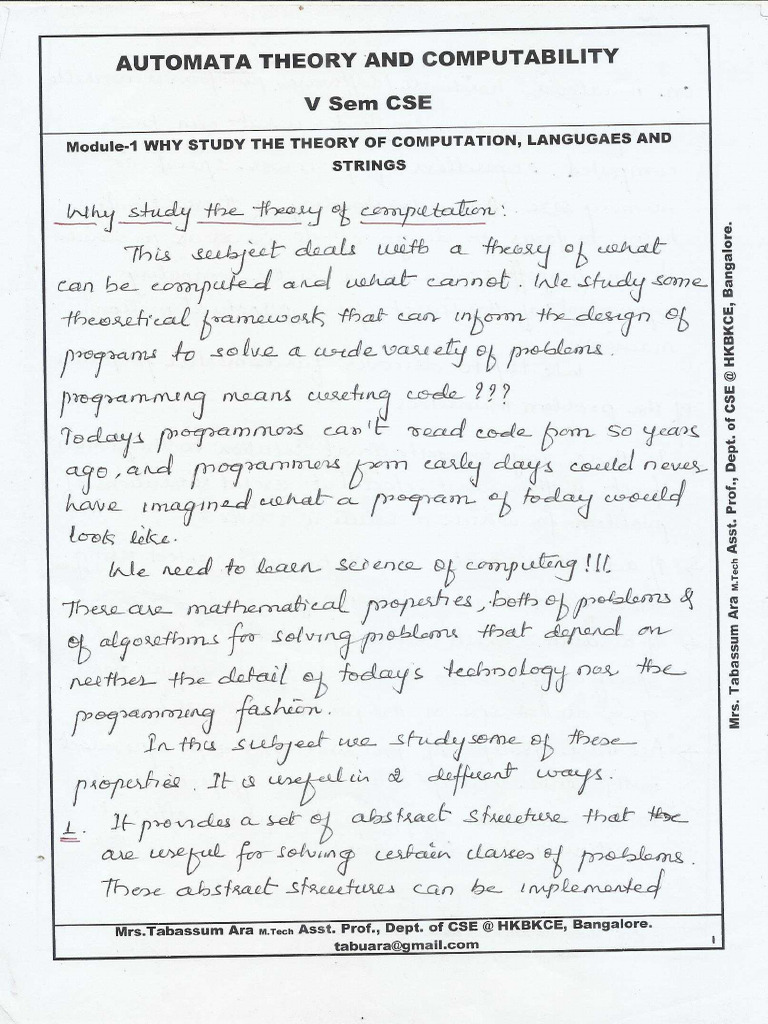 AUTOMATA THEORY AND COMPUTABILITY
V Sem CSE
Module-1 WHY STUDY THE THEORY OF COMPUTATION, LANGUGAES AND
STRINGS
Why study the theory of computation:
This subject deals with a theory of what
can be computed and what cannot. We study some
theoretical framework that can inform the design of
programs to solve a wide variety of problems.
programming means writing code ???
Todays programmers can't read code from 50 years
ago, and programmers from early days could never
have imagined what a program of today would
look like.
We need to learn science of computing!!!.
There are mathematical properties, both of problems &
of algorithms for solving problems that depend on
neither the detail of today's technology nor the
programming fashion.
In this subject we study some of these
properties. It is useful in 2 different ways.
1. It provides a set of abstract structure that the
are useful for solving certain classes of problems.
These abstract structures can be implemented
Mrs.Tabassum Ara M.Tech Asst. Prof., Dept. of CSE @ HKBKCE, Bangalore.
tabuara@gmail.com
1
Mrs. Tabassum Ara M.Tech Asst. Prof., Dept. of CSE @ HKBKCE, Bangalore.